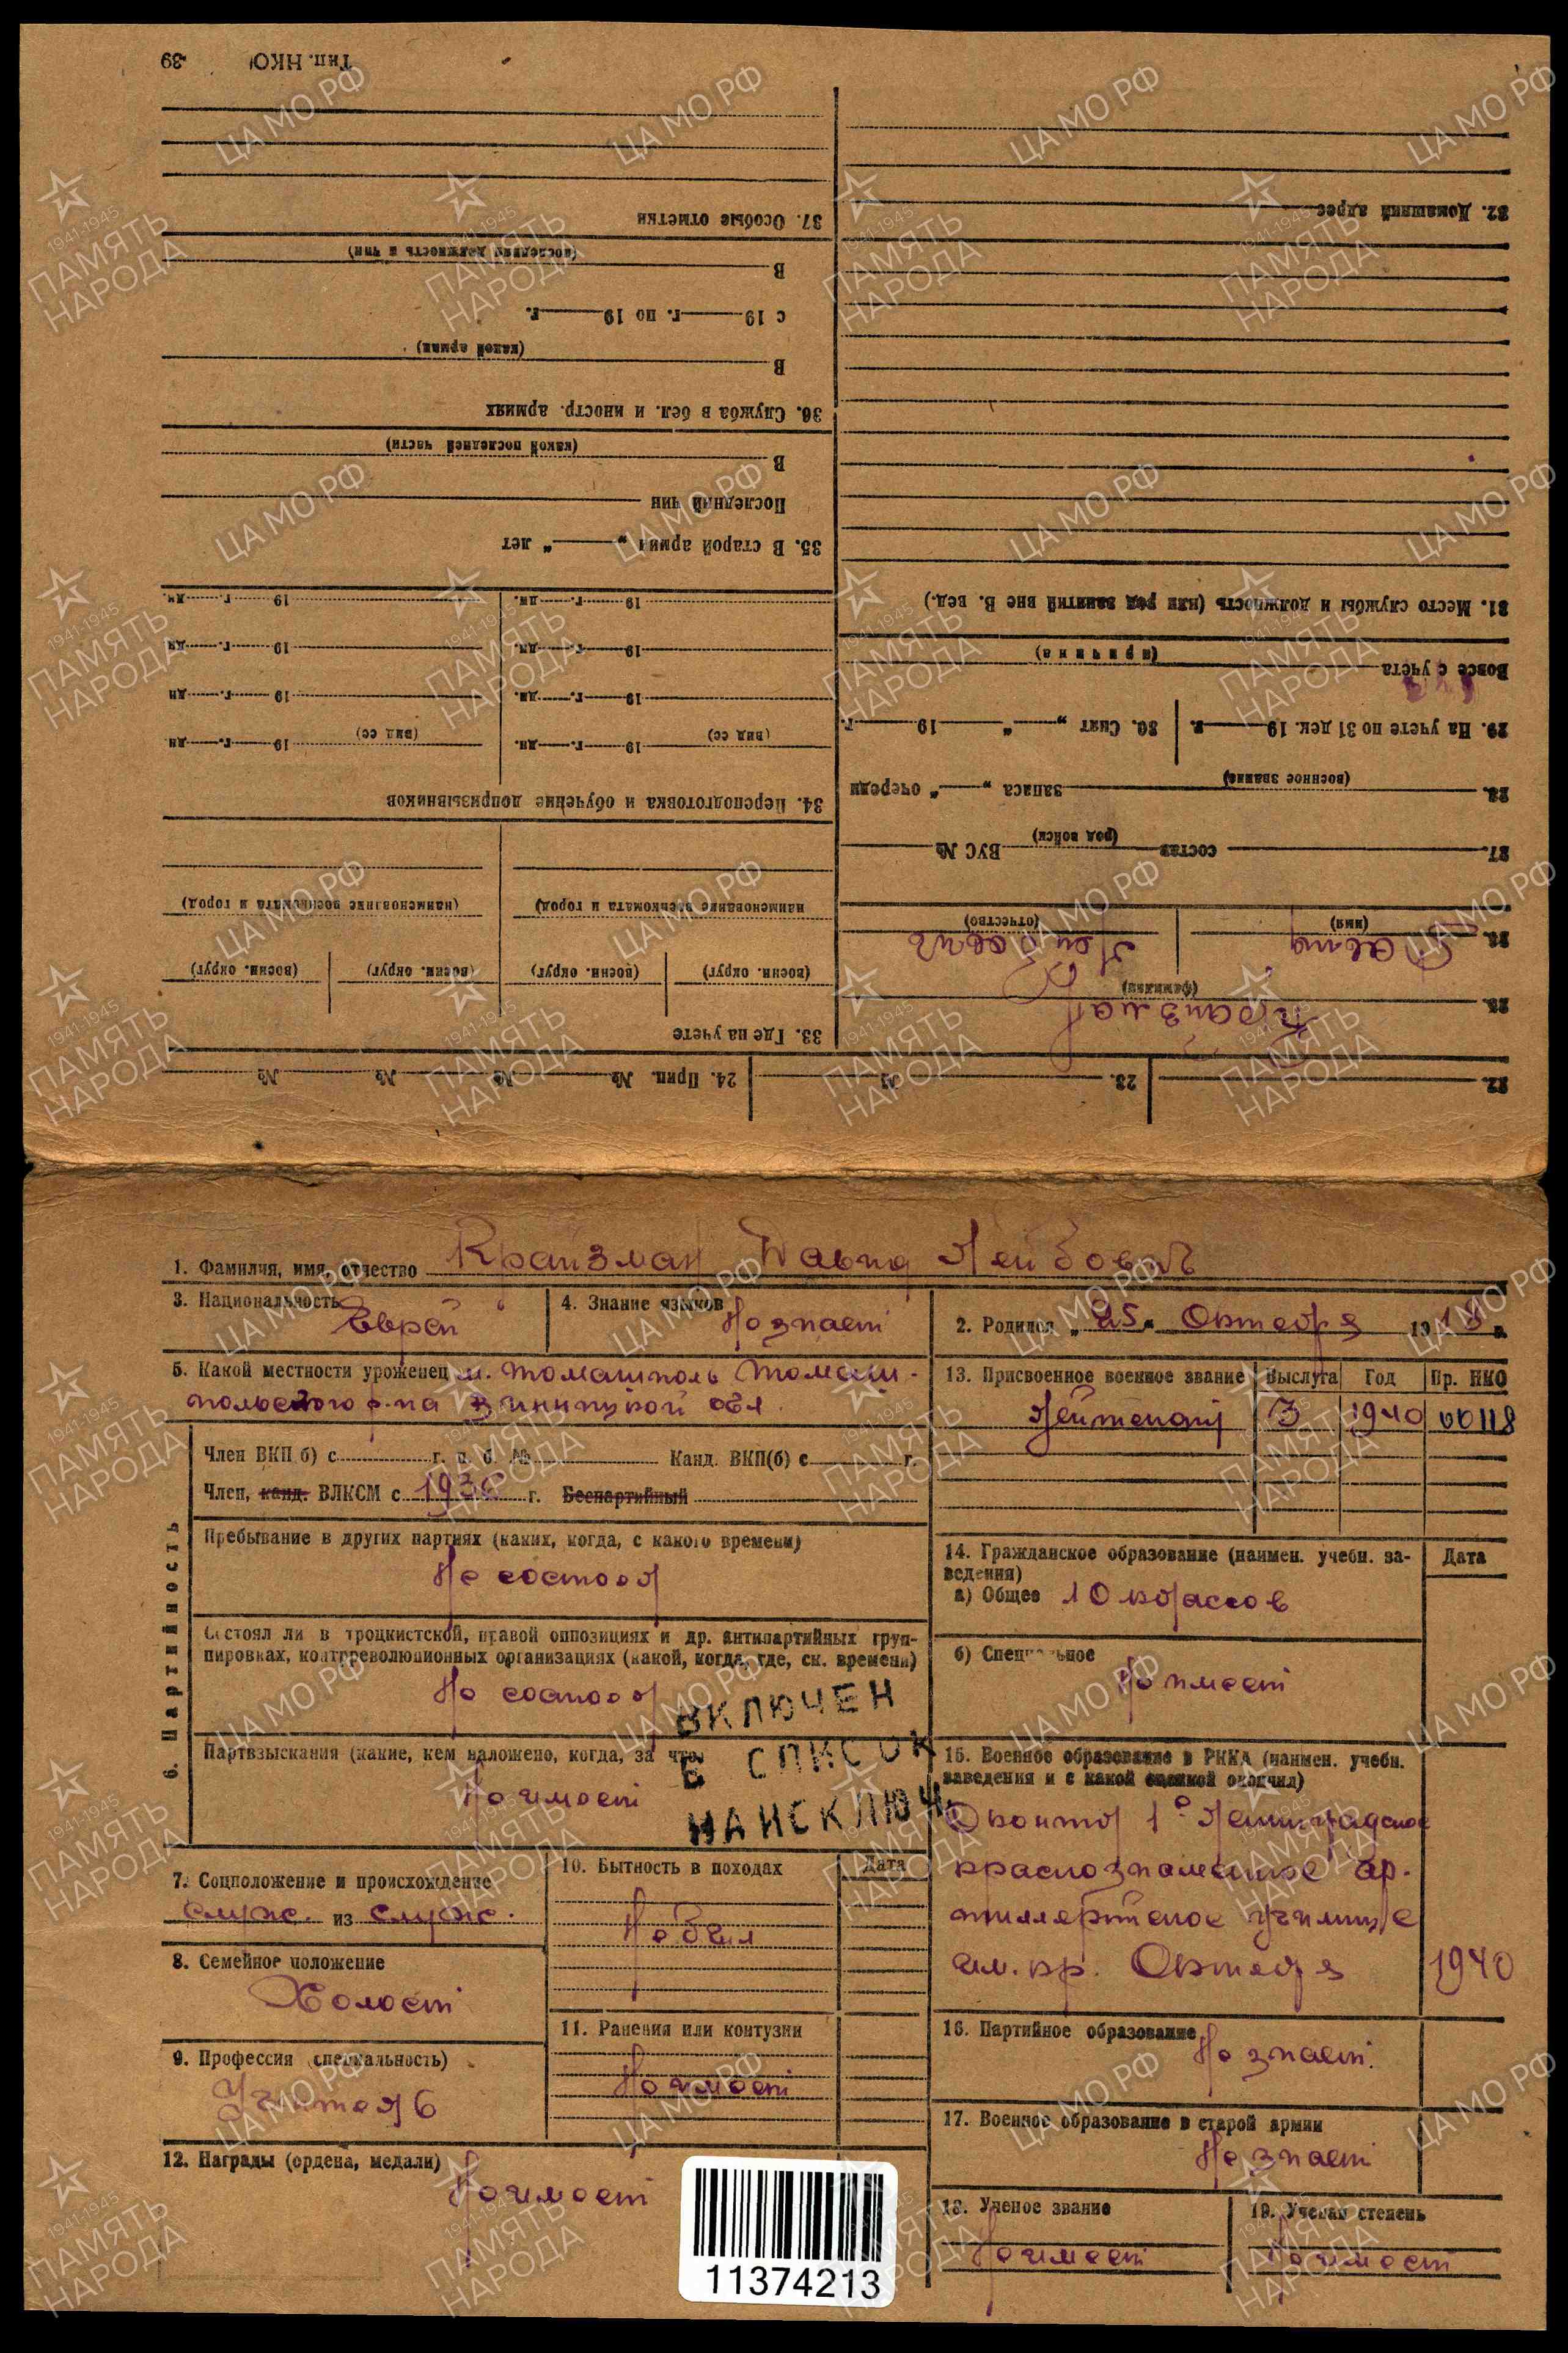 Тип. НКО 39
22. 23. № 24. Прип. № № № №
25. Крайзман
(фамилия)
26. Давид Лейбович
(имя) (отчество)
27. состав ВУС №
(род войск)
28. запаса „ “ очереди
(военное звание)
29. На учете по 31 дек. 19 г. 30. Снят „ “ 19 г.
Вовсе с учета
(причина)
31. Место службы и должность (или род занятий вне В. вед.)
32. Домашний адрес
33. Где на учете
(воени. округ) (воени. округ) (воени. округ) (воени. округ)
наименование военкомата и город) (наименование военкомата и город)
34. Переподготовка и обучение допризывников
(вид сс) 19 г. дн. (вид сс) 19 г. дн.
19 г. дн. 19 г. дн
19 г. дн. 19 г. дн
19 г. дн. 19 г. дн.
35. В старой армии „ “ лет
Последний чин
В
(какой последней части)
36. Служба в бел. и иностр. армиях
В
(какой армии)
с 19 г. по 19 г.
В
(последняя должность и чин)
37. Особые отметки
1. Фамилия, имя, отчество Крайзман Давид Лейбович
3. Национальность Еврей
4. Знание языков Не знает
2. Родился „25“ Октября 1918 г.
5. Какой местности уроженец м. Томашполь Томаш-
польского р-на Винницкой обл.
6. Партийность
Член ВКП б) с г. п. б. № Канд. ВКП(б) с г.
Член, канд. ВЛКСМ с г. Беспартийный
Пребывание в других партиях (каких, когда, с какого времени)
Не состоял
Состоял ли в троцкистской, правой оппозициях и др. антипартийных груп-
пировках, контрреволюционных организациях (какой, когда, где, ск. времени)
Не состоял
Партвзыскания (какие, кем наложено, когда, за что)
Не имеет
ВКЛЮЧЕН
В СПИСОК
НА ИСКЛЮЧ.
7. Соцположение и происхождение
служ. из служ.
8. Семейное положение
Холост
9. Профессия (специальность)
Учитель
10. Бытность в походах Дата
Не был
11. Ранения или контузии
Не имеет
12. Награды (ордена, медали)
Не имеет
13. Присвоенное военное звание Выслуга Год Пр. НКО
Лейтенант 3 1940 00118
14. Гражданское образование (наимен. учебн. за-
ведения) Дата
а) Общее 10 классов
б) Специальное
Не имеет
15. Военное образование в РККА (наимен. учебн.
заведения и с какой оценкой окончил)
Окончил 1е Ленинградское
краснознаменное ар-
тиллерийское училище
им. кр. Октября 1940
16. Партийное образование
Не знает.
17. Военное образование в старой армии
Не знает
18. Ученое звание
Не имеет
19. Ученая степень
Не имеет
11374213
ЦА МО РФ
1941-1945
ПАМЯТЬ
НАРОДА